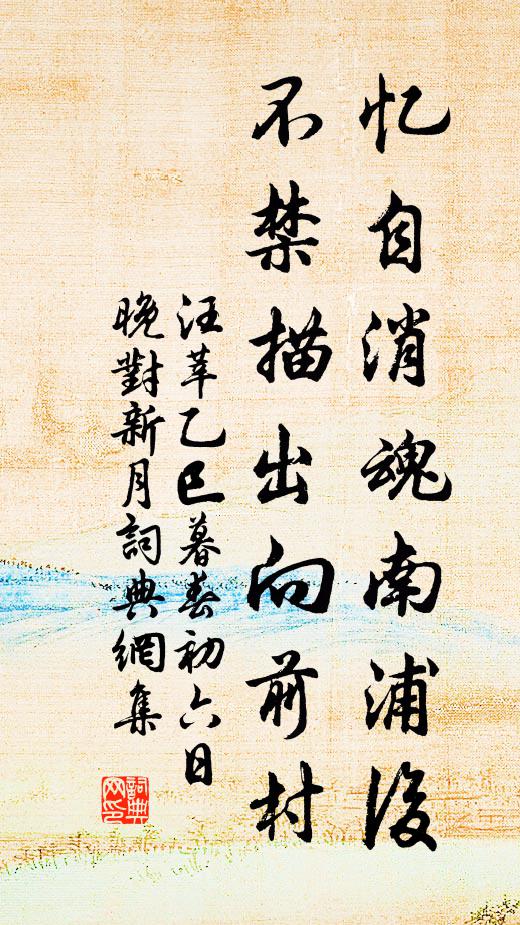 忆自消魂南浦後
不禁描出向前村
汪莘乙巳暮春初六日
晚對新月詞典網集
詞典网印